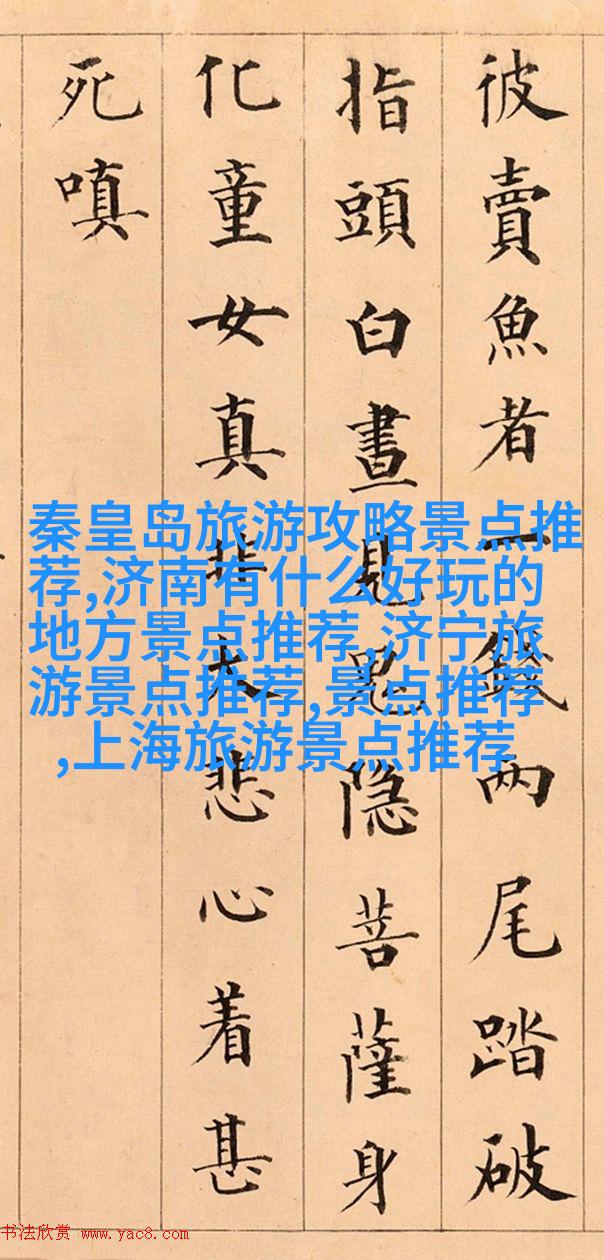 彼賣魚者一錢兩尾踏破
指頭白晝見鬼隐菩薩身
化童女真非大悲心着甚
死嗔
秦皇岛旅游攻略景点推
荐,济南有什么好玩的
地方景点推荐,济宁旅
游景点推荐,景点推荐
,上海旅游景点推荐
书法欣赏 www.yac8.com